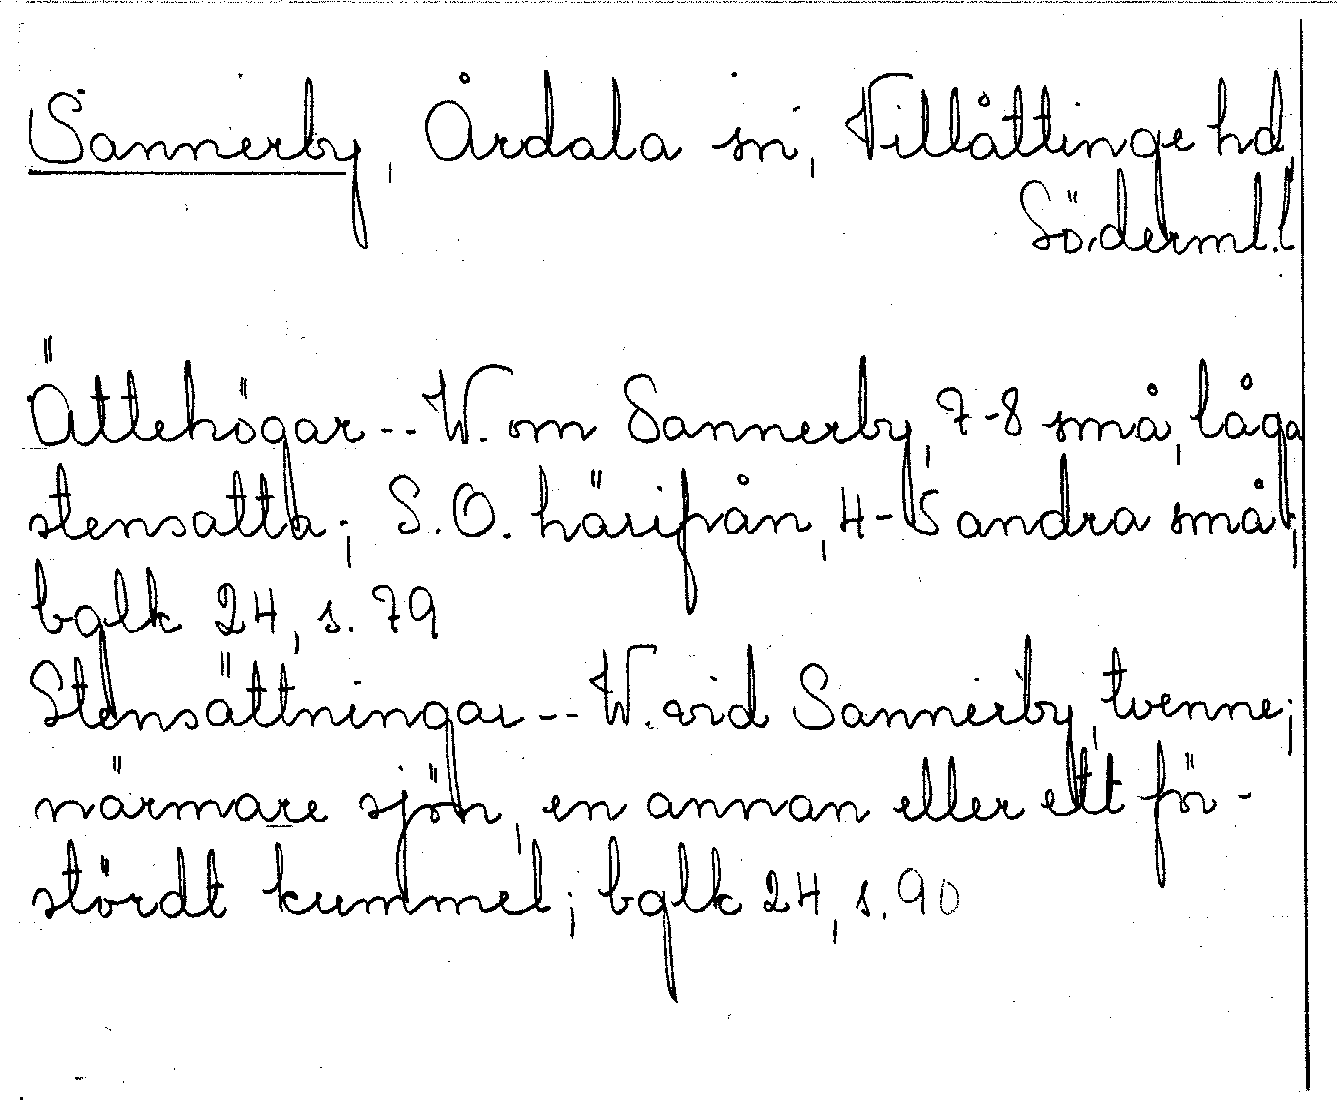 Sannerby, Årdala sn, Villåttinge hd,
Söderml.l
Ättehögar -- W. om Sannerby, 7-8 små, låga
stensatta; S.O. härifrån, 4-5 andra små;
bglk 24, s. 79
Stensättningar -- W. vid Sannerby, tvenne;
närmare sjön, en annan eller ett för-
stördt kummel; bglk 24, s. 90